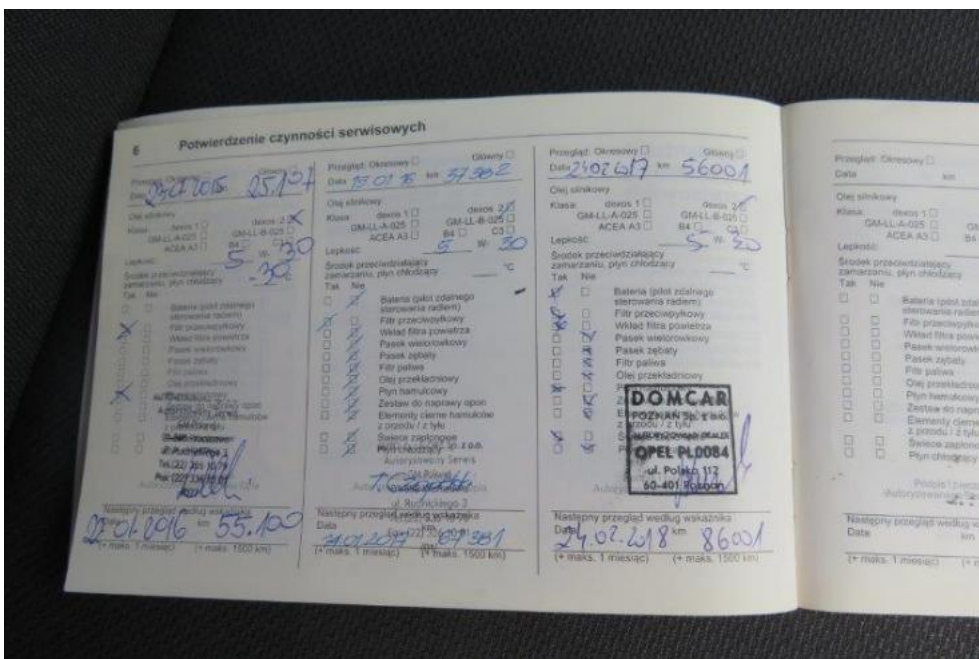 6 Potwierdzenie czynności serwisowych
Przegląd: Okresowy
25.107
Olej silnikowy
Klasa: dexos 1 dexos 2
GM-LL-A-025 GM-LL-B-025
ACEA A3 B4 C3
Lepkość: 5 W- 30
Środek przeciwdziałający
zamarzaniu, płyn chłodzący -30
Tak Nie
Bateria (pilot zdalnego
sterowania radiem)
Filtr przeciwpyłkowy
Wkład filtra powietrza
Pasek wielorowkowy
Pasek zębaty
Filtr paliwa
Olej przekładniowy
do naprawy opon
hamulców
ul. Rudnickiego 3
Następny przegląd według wskaźnika
22.01.2016 km 55.100
(+ maks. 1 miesiąc) (+ maks. 1500 km)
Przegląd: Okresowy Główny
Data 19 01 16 km 37.382
Olej silnikowy
Klasa: dexos 1 dexos 2
GM-LL-A-025 GM-LL-B-025
ACEA A3 B4 C3
Lepkość: 5 W- 30
Środek przeciwdziałający
zamarzaniu, płyn chłodzący °C
Tak Nie
Bateria (pilot zdalnego
sterowania radiem)
Filtr przeciwpyłkowy
Wkład filtra powietrza
Pasek wielorowkowy
Pasek zębaty
Filtr paliwa
Olej przekładniowy
Płyn hamulcowy
Zestaw do naprawy opon
Elementy cierne hamulców
z przodu / z tyłu
Świece zapłonowe
Płyn chłodzący
Autoryzowany Serwis
ul. Rudnickiego 3
Następny przegląd według wskaźnika
Data
(+ maks. 1 miesiąc) (+ maks. 1500 km)
Przegląd: Okresowy Główny
Data 24 02 2017 km 56001
Olej silnikowy
Klasa: dexos 1 dexos 2
GM-LL-A-025 GM-LL-B-025
ACEA A3 B4 C3
Lepkość: 5 W- 30
Środek przeciwdziałający
zamarzaniu, płyn chłodzący °C
Tak Nie
Bateria (pilot zdalnego
sterowania radiem)
Filtr przeciwpyłkowy
Wkład filtra powietrza
Pasek wielorowkowy
Pasek zębaty
Filtr paliwa
Olej przekładniowy
DOMCAR
POZNAŃ Sp. z o.o.
OPEL PL0084
ul. Polska 112
60-401 Poznań
Następny przegląd według wskaźnika
Data 24.02.2018 km 86001
(+ maks. 1 miesiąc) (+ maks. 1500 km)
Przegląd: Okresowy
Data km
Olej silnikowy
Klasa: dexos 1
GM-LL-A-025
ACEA A3
Lepkość:
Środek przeciwdziałający
zamarzaniu, płyn chłodzący
Tak Nie
Bateria (pilot
sterowania
Filtr
Wkład filtra
Pasek
Pasek zębaty
Filtr paliwa
Olej
Płyn
Zestaw do
Elementy
z przodu / z tyłu
Świece
Płyn
Następny przegląd według
Data km
(+ maks. 1 miesiąc)